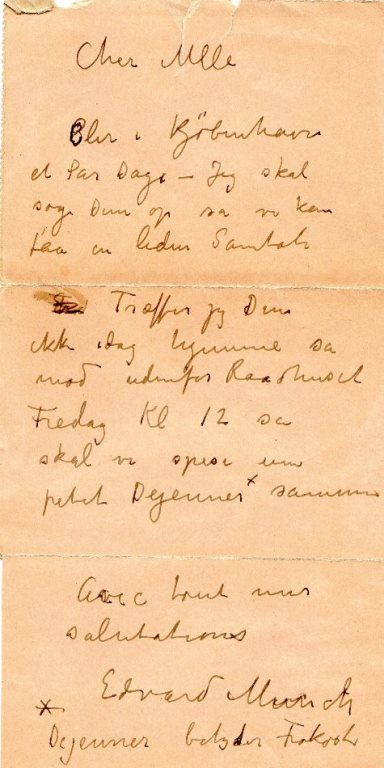 Cher Mlle
Blir i Kjöbenhavn
et Par Dage – Jeg skal
søge Dem op sa vi kan
faa en liden Samtale
Træffer jeg Dem
ikke idag hjemme sa
mød udenfor Raadhuset
Fredag Kl 12 sa
skal vi spise un
petit Dejeuner x sammen
Avec tout mes
salutations
Edvard Munch
x
Dejeuner betyder Frokost